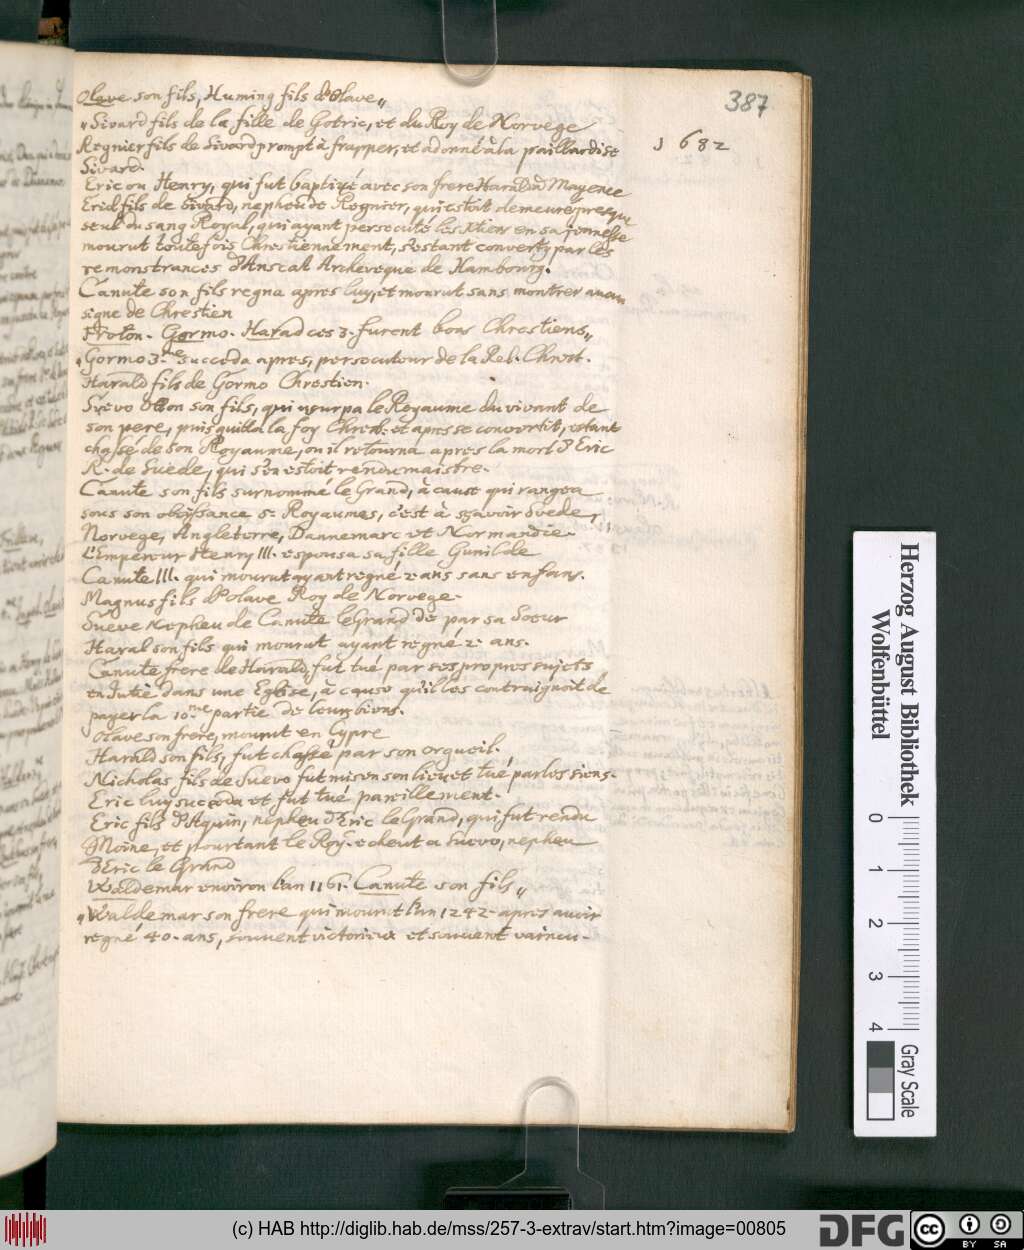 387
Olave son fils, Huming fils d'Olave„
„Sivard fils de la fille de Gotric, et du Roy de Norvege
Regnier fils de Sivard prompt à frapper, et adonné à la paillardise
1682
Sivard.
Eric ou Henry, qui fut baptizé avec son frere Harald à Mayence
Eric fils de Sivard, nepheu de Regnier, qui estoit demeuré presque
seul du sang Royal, qui ayant persecuté les Xtiens en sa jeunesse
mourut toutefois Chrestiennement, s'estant converty par les
remonstrances d'Anscal Archeveque de Hambourg.
Canute son fils regna apres luy, et mourut sans montrer aucun
signe de Chrestien
Froton. Gormo. Harad ces 3. furent bons Chrestiens„
„Gormo 3.me succeda apres, persecuteur de la Rel. Chrest.
Harald fils de Gormo Chrestien.
Svevo Otton son fils, qui usurpa le Royaume du vivant de
son pere, puis quitta la foy Chrest. et apres se convertit, estant
chassé de son Royaume, ou il retourna apres la mort d'Eric
R. de Suede, qui s'en estoit rendu maistre.
Canute son fils surnommé le Grand, à cause qui rangea
sous son obeyssance 5. Royaumes, c'est à sçavoir Suede,
Norvege, Angleterre, Dannemarc et Normandie.
L'Empereur Henry III. espousa sa fille Gunilde
Canute III. qui mourut ayant regné 2 ans sans enfans.
Magnus fils d'Olave Roy de Norvege.
Sueve Nepheu de Canute le Grand de par sa Soeur
Haral son fils qui mourut ayant regné 2. ans.
Canute frere de Harald, fut tué par ses propres sujets
en Jutie dans une Eglise, à cause qu'il les contraignoit de
payer la 10.me partie de leurs biens.
Olave son frere, mourut en Cypre
Harald son fils, fut chassé par son orgueil.
Nicholas fils de Suevo fut mis en son lieu et tué par les siens.
Eric luy succeda et fut tué pareillement.
Eric fils d'Aquin, nepheu d'Eric le Grand, qui fut rendu
Moine, et pourtant le Roy.e echeut a Suevo, nepheu
d'Eric le Grand
Waldemar environ l'an 1161. Canute son fils„
„Waldemar son frere qui mourut l'an 1242. apres avoir
regné 40. ans, souvent victorieux et souvent vaincu.
Herzog August Bibliothek
Wolfenbüttel
0 1 2 3 4
Gray Scale
(c) HAB http://diglib.hab.de/mss/257-3-extrav/start.htm?image=00805
DFG
cc BY SA